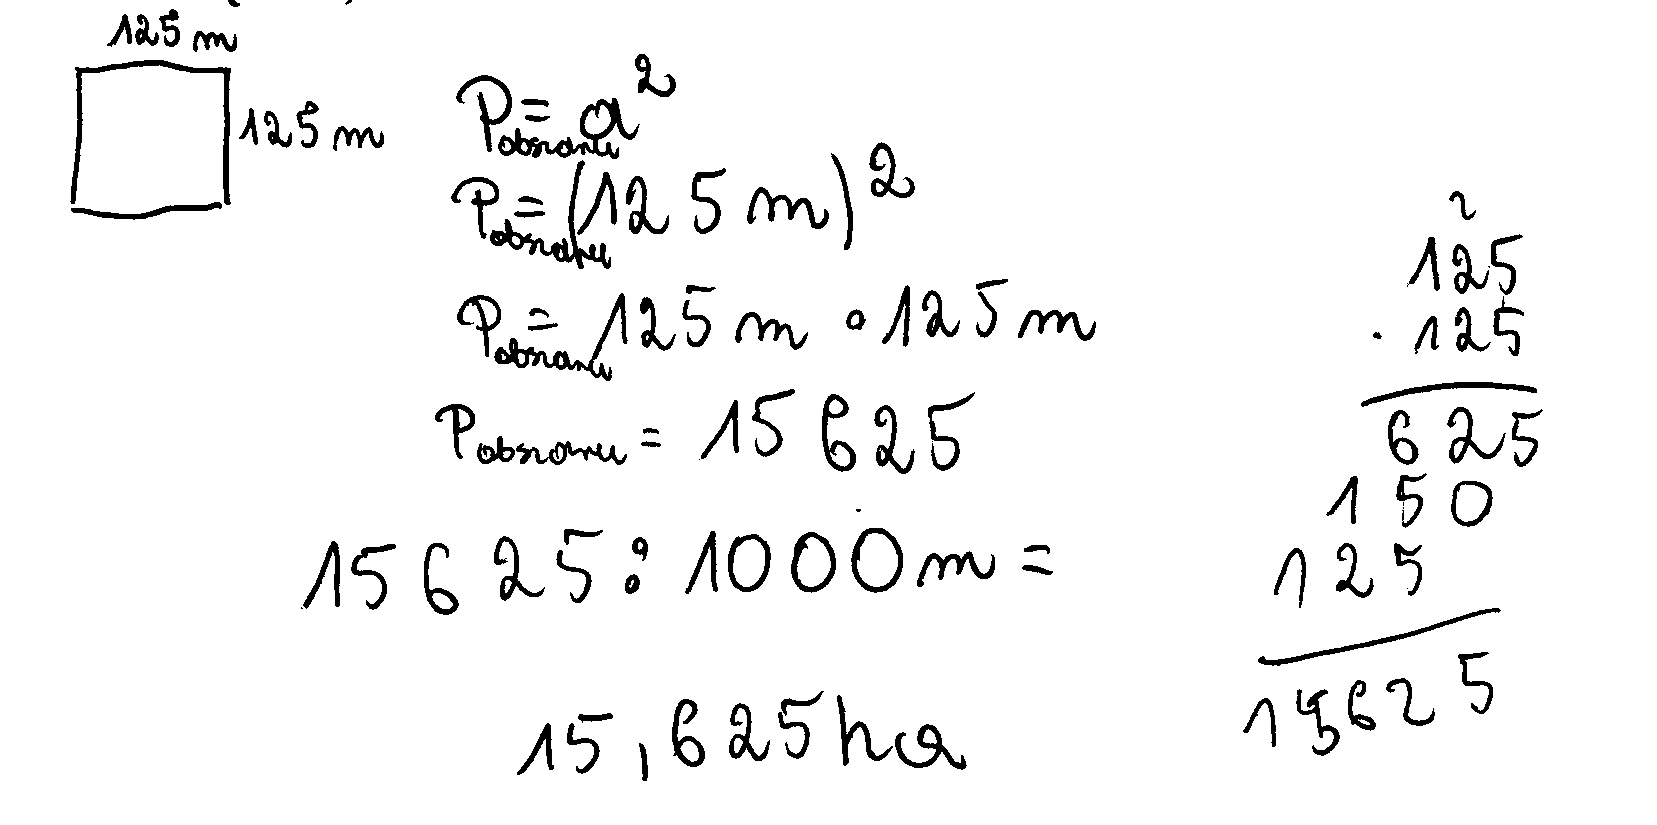 125 m
125 m
P obszaru = a²
P obszaru = (125 m)²
P obszaru = 125 m · 125 m
P obszaru = 15 625
15 625 : 1000 m =
15,625 ha
2
125
· 125
625
150
125
15625